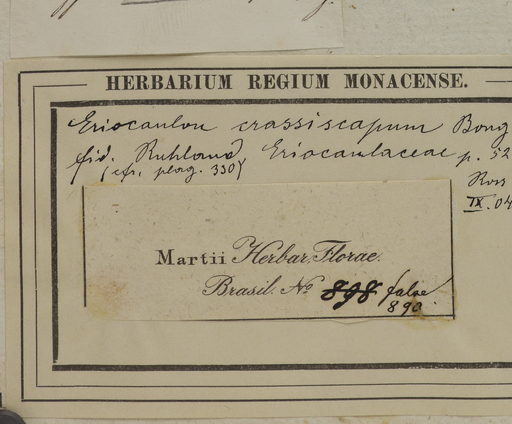 HERBARIUM REGIUM MONACENSE.
Eriocaulon crassiscapum Bong
fid. Ruhland, Eriocaulaceae p. 52
(cfr. plag. 330)
Ross
IX.04
Martii Herbar. Florae
Brasil. No 898 false
890